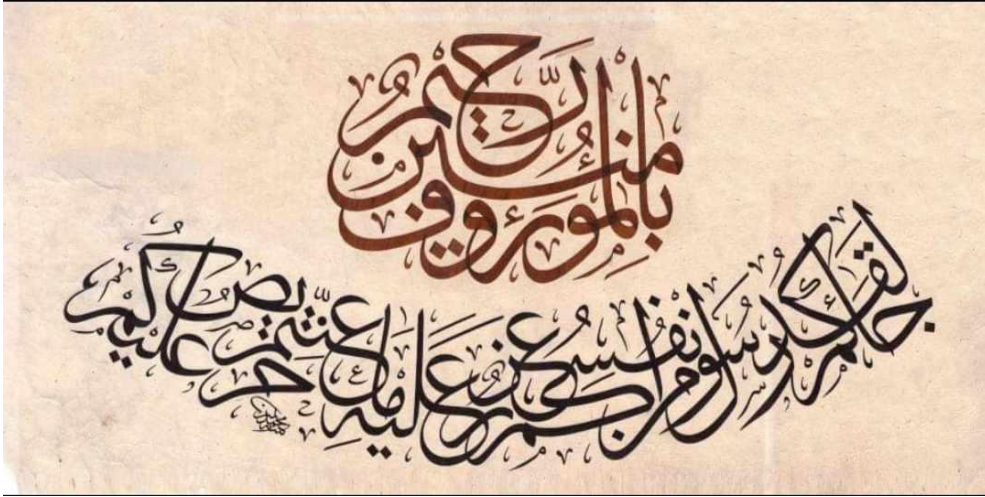 لقد جاءكم رسول من أنفسكم عزيز عليه ما عنتم حريص عليكم
بالمؤمنين رءوف رحيم